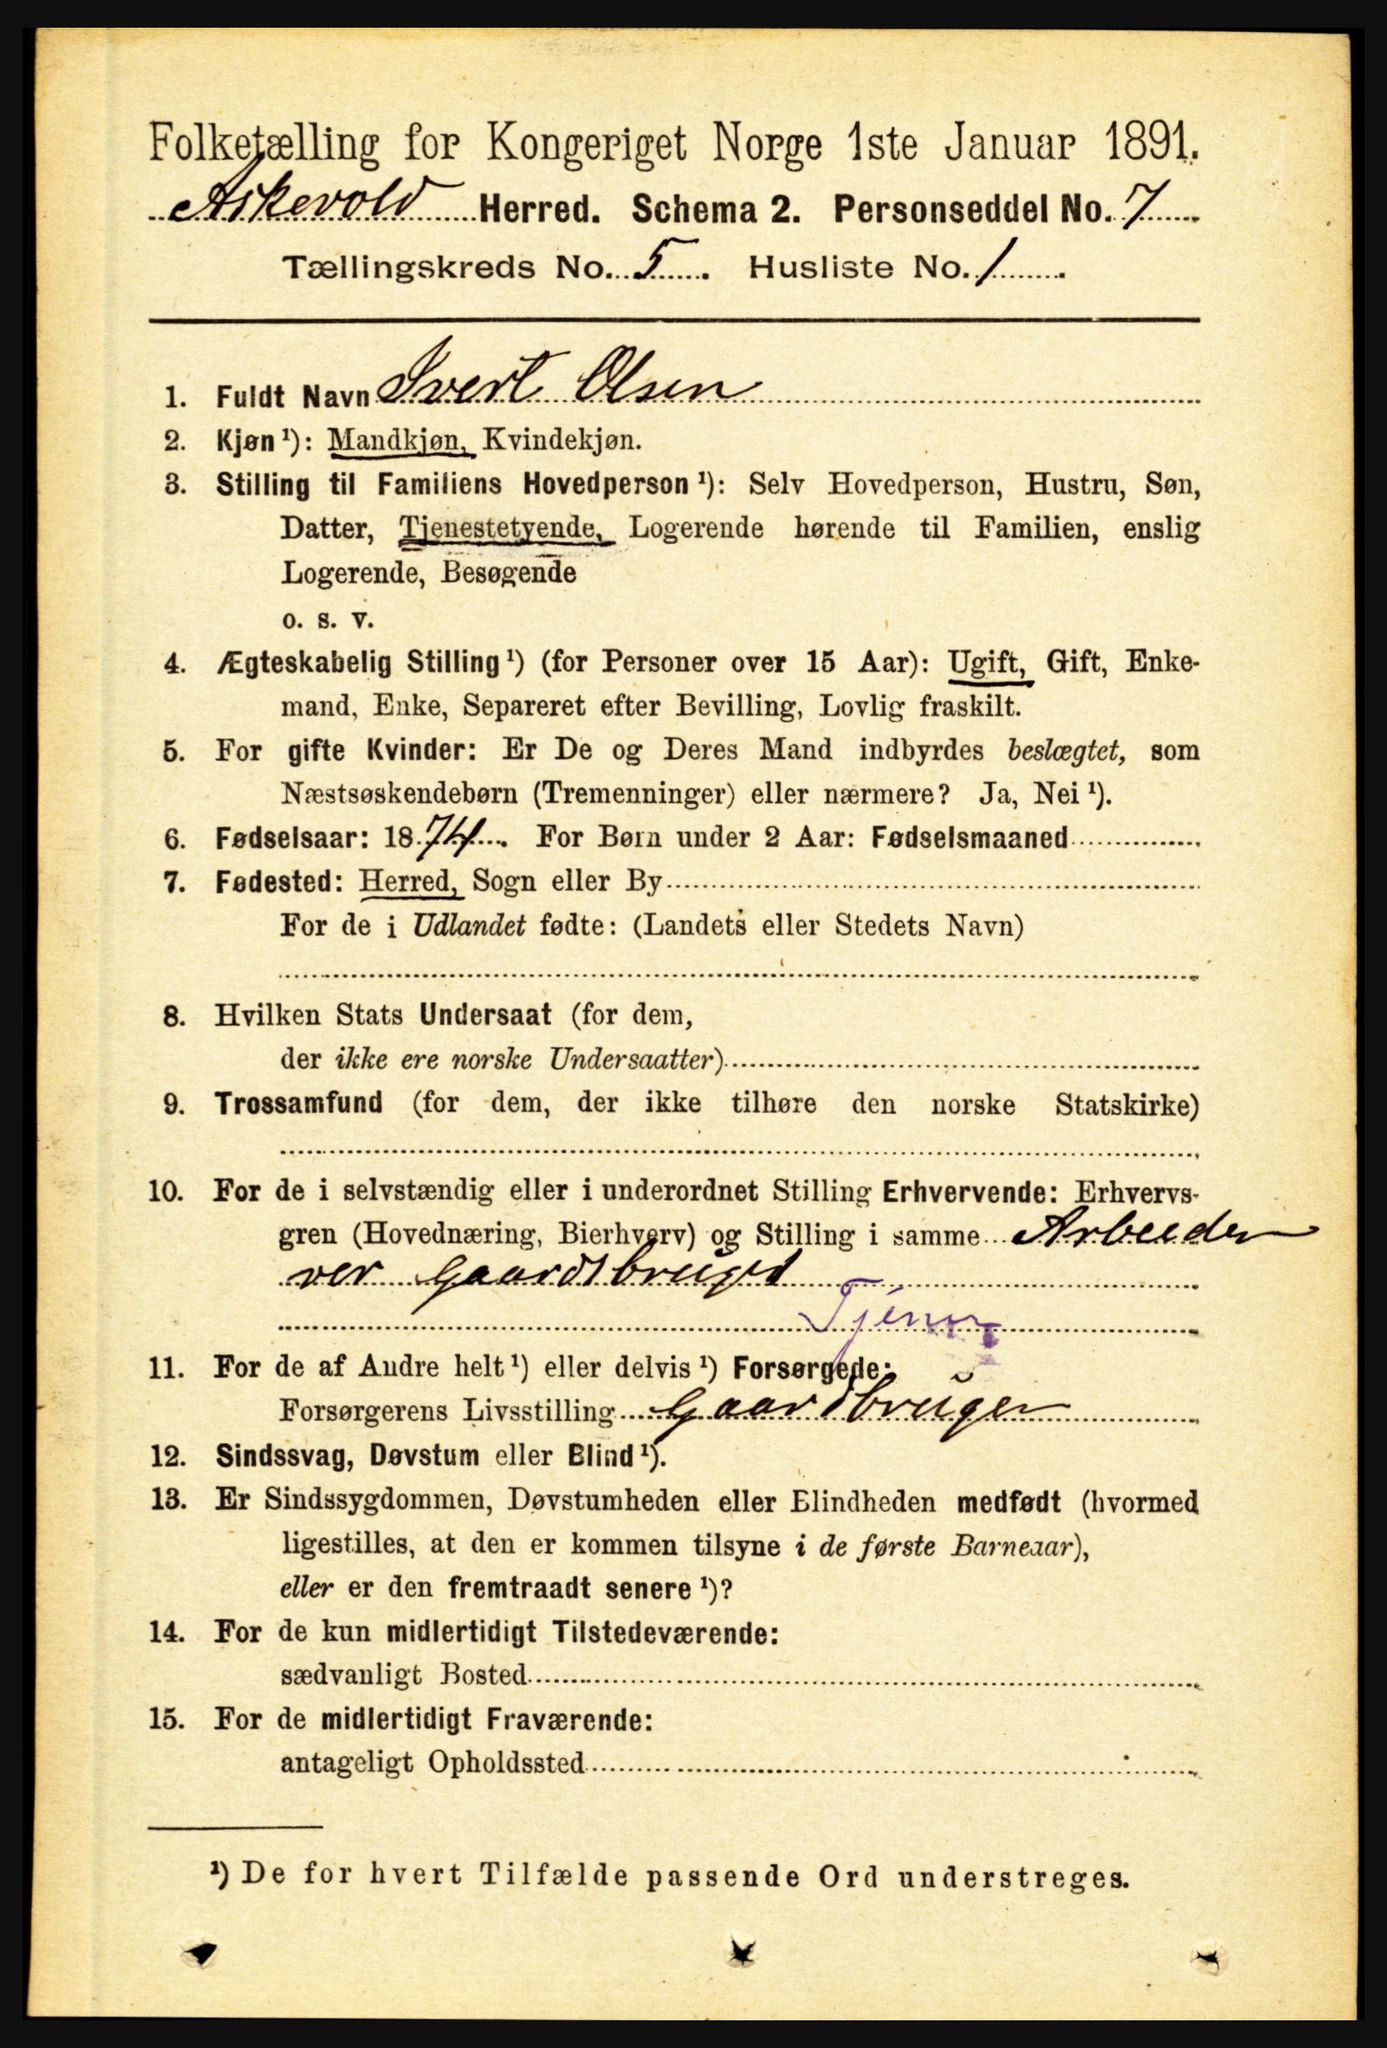 Folketælling for Kongeriget Norge 1ste Januar 1891.
Askevold Herred. Schema 2. Personseddel No. 7
Tællingskreds No. 5 Husliste No. 1
1. Fuldt Navn Ivert Olsen
2. Kjøn ¹): Mandkjøn, Kvindekjøn.
3. Stilling til Familiens Hovedperson ¹): Selv Hovedperson, Hustru, Søn,
Datter, Tjenestetyende, Logerende hørende til Familien, enslig
Logerende, Besøgende
o. s. v.
4. Ægteskabelig Stilling ¹) (for Personer over 15 Aar): Ugift, Gift, Enke-
mand, Enke, Separeret efter Bevilling, Lovlig fraskilt.
5. For gifte Kvinder: Er De og Deres Mand indbyrdes beslægtet, som
Næstsøskendebørn (Tremenninger) eller nærmere? Ja, Nei ¹).
6. Fødselsaar: 1874. For Børn under 2 Aar: Fødselsmaaned
7. Fødested: Herred, Sogn eller By
For de i Udlandet fødte: (Landets eller Stedets Navn)
8. Hvilken Stats Undersaat (for dem,
der ikke ere norske Undersaatter)
9. Trossamfund (for dem, der ikke tilhøre den norske Statskirke)
10. For de i selvstændig eller i underordnet Stilling Erhvervende: Erhvervs-
gren (Hovednæring, Bierhverv) og Stilling i samme Arbeider
ver Gaardsbruget
Tjener
11. For de af Andre helt ¹) eller delvis ¹) Forsørgede:
Forsørgerens Livsstilling Gaardbruger
12. Sindssvag, Døvstum eller Blind ¹).
13. Er Sindssygdommen, Døvstumheden eller Blindheden medfødt (hvormed
ligestilles, at den er kommen tilsyne i de første Barneaar),
eller er den fremtraadt senere ¹)?
14. For de kun midlertidigt Tilstedeværende:
sædvanligt Bosted
15. For de midlertidigt Fraværende:
antageligt Opholdssted
¹) De for hvert Tilfælde passende Ord understreges.